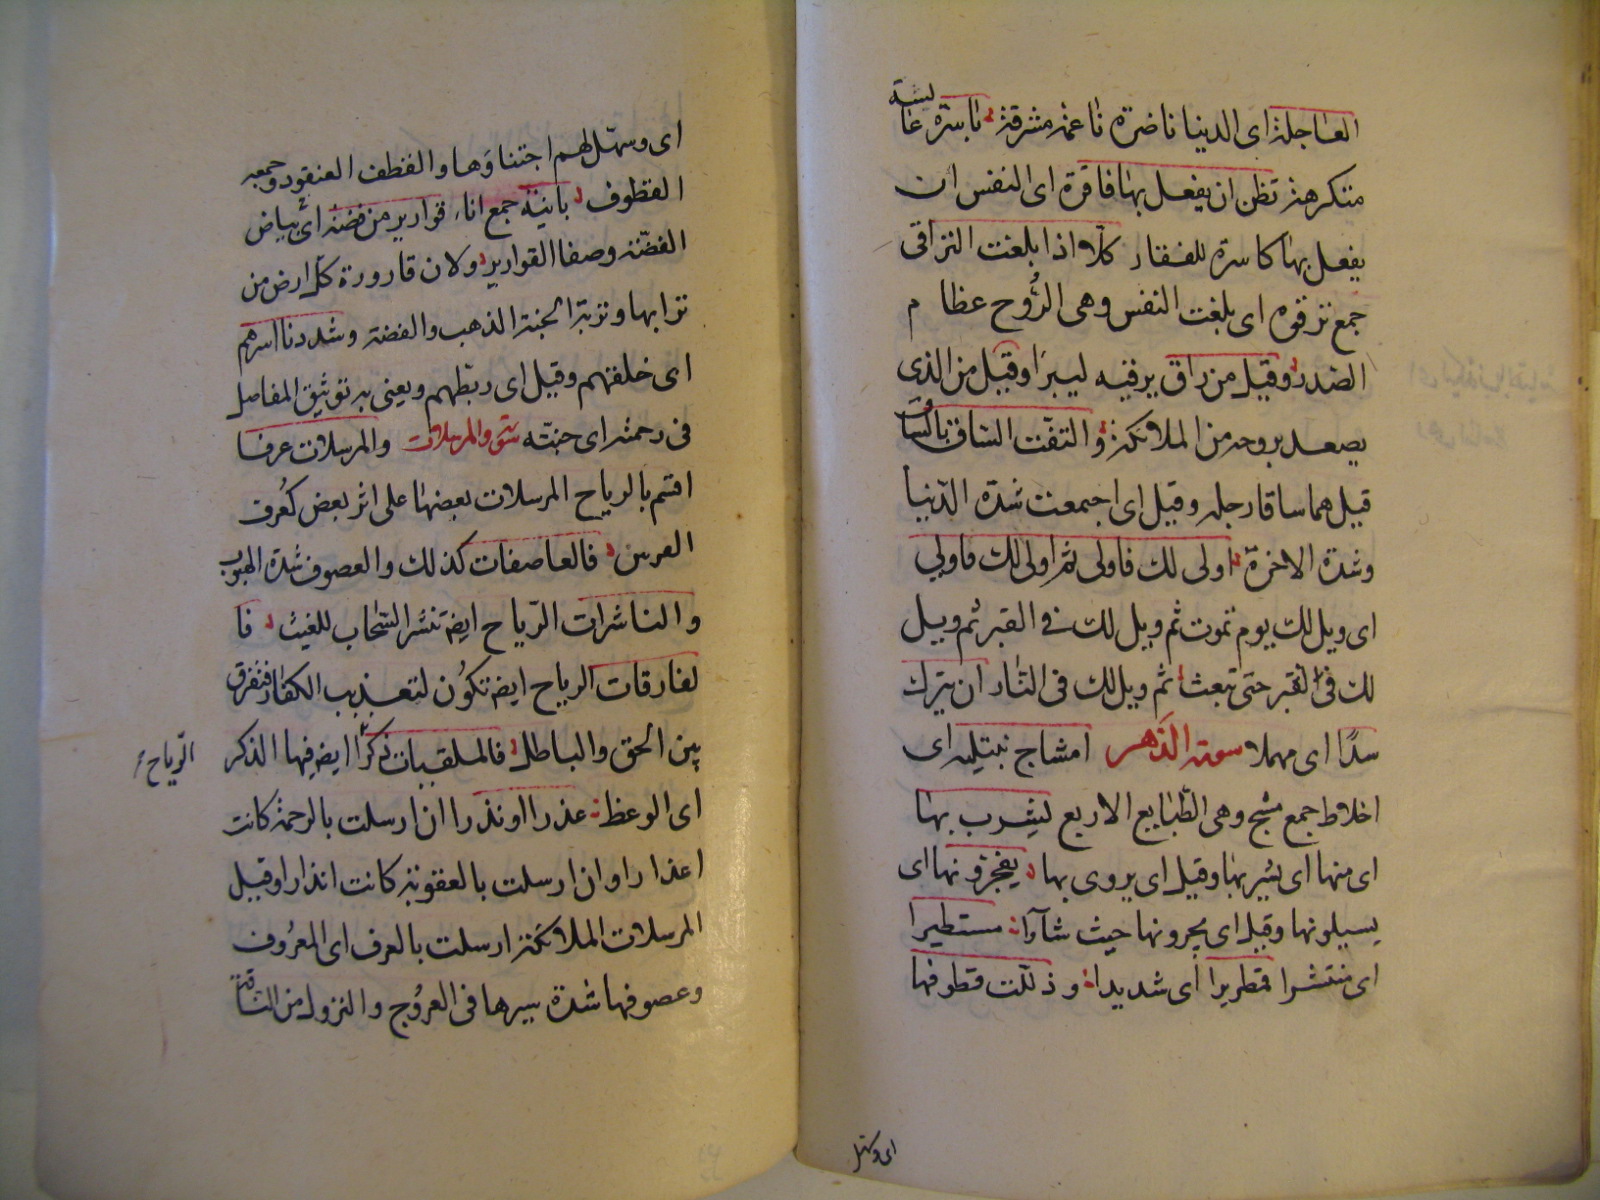 العاجلة اى الدنيا ناضرة ناعمة مشرقة باسرة عابسة
متكرهة تظن ان يفعل بها فاقرة اى النفس ان
يفعل بها كاسرة للفقار كلا اذا بلغت التراقى
جمع ترقوة اى بلغت النفس وهى الرُّوح عظام
الصّدر وقيل من راق يرقيه ليبرا وقيل من الذى
يصعد بروحه من الملائكة و التفّت الساق بالسّاق
قيل هما ساقا رجله وقيل اى اجتمعت شدّة الدّنيا
وشدة الاخرة اولى لك فاولى ثم اولى لك فاولى
اى ويل لك يوم تموت ثم ويل لك فى القبر ثم ويل
لك فى القبر حتى تبعث ثم ويل لك فى النّار ان يترك
سدًا اى مهملا سورة الدّهر امشاج نبتليه اى
اخلاط جمع مشج وهى الطّبايع الاربع يشرب بها
اى منها اى يشربها وقيل اى يروى بها يفجرونها اى
يسيلونها وقيل اى يجرونها حيث شاؤا مستطيرا
اى منتشرا قمطريرا اى شديدا و ذلّلت قطوفها
اى وسهّل
اى وسهّل لهم اجتناؤها والقطف العنقود وجمعه
القطوف بانية جمع اناء قوارير من فضة اى بياض
الفضّة وصفا القوارير ولان قارورة كلّ ارض من
ترابها وتربة الجنة الذهب والفضة وشددنا اسرهم
اى خلقهم وقيل اى ربطهم ويعنى به توثيق المفاصل
فى رحمته اى جنّته سورة والمرسلات والمرسلات عرفا
اقسم بالرياح المرسلات بعضها على اثر بعض كعُرف
الفرس فالعاصفات كذلك والعصوف شدة الهبوب
والناشرات الرّياح ايضا تنشر السّحاب للغيث فا
لفارقات الرياح ايضا تكوُن لتعذيب الكفار فتفرق
بين الحق والباطل فالملقيات ذكرًا ايضا فيها الذكر
الرّياح
اى الوعظ عذرا اونذرا ان ارسلت بالرحمة كانت
اعذارا وان ارسلت بالعقوبة كانت انذارا وقيل
المرسلات الملائكة ارسلت بالعرف اى المعرُوف
وعصوفها شدة سيرها فى العرُوج والنزول من